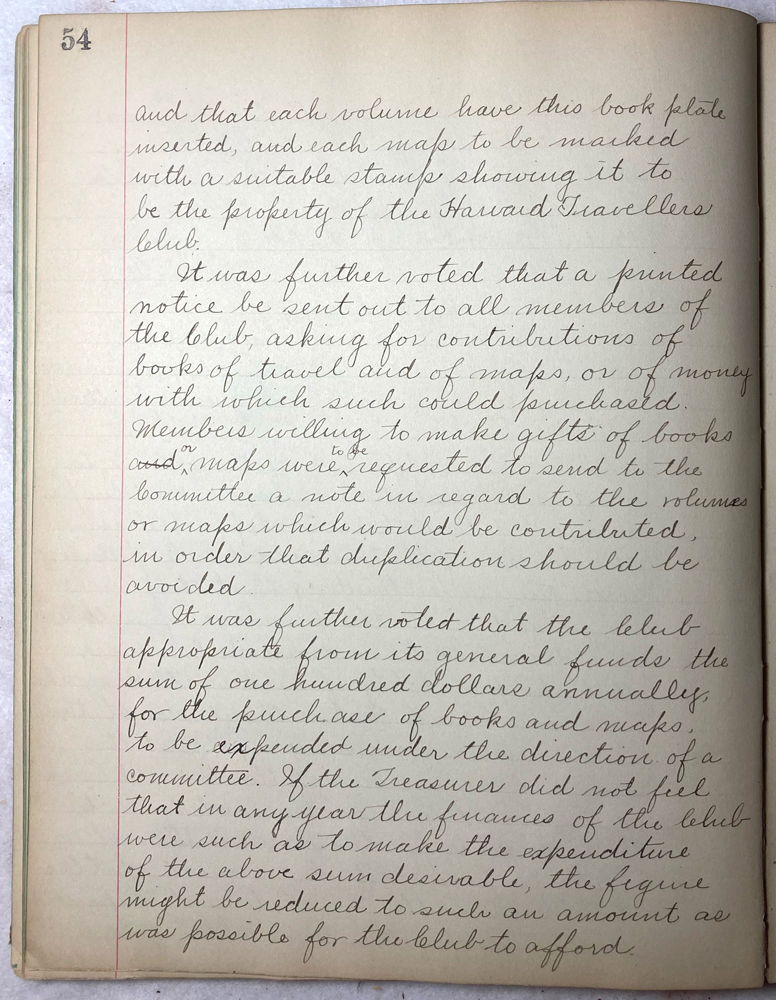 54
and that each volume have this book plate
inserted, and each map to be marked
with a suitable stamp showing it to
be the property of the Harvard Travellers
Club.
It was further voted that a printed
notice be sent out to all members of
the Club, asking for contributions of
books of travel and of maps, or of money
with which such could purchased.
Members willing to make gifts of books
and or maps were to be requested to send to the
Committee a note in regard to the volumes
or maps which would be contributed,
in order that duplication should be
avoided.
It was further voted that the Club
appropriate from its general funds the
sum of one hundred dollars annually,
for the purchase of books and maps,
to be expended under the direction of a
committee. If the Treasurer did not feel
that in any year the finances of the Club
were such as to make the expenditure
of the above sum desirable, the figure
might be reduced to such an amount as
was possible for the Club to afford.